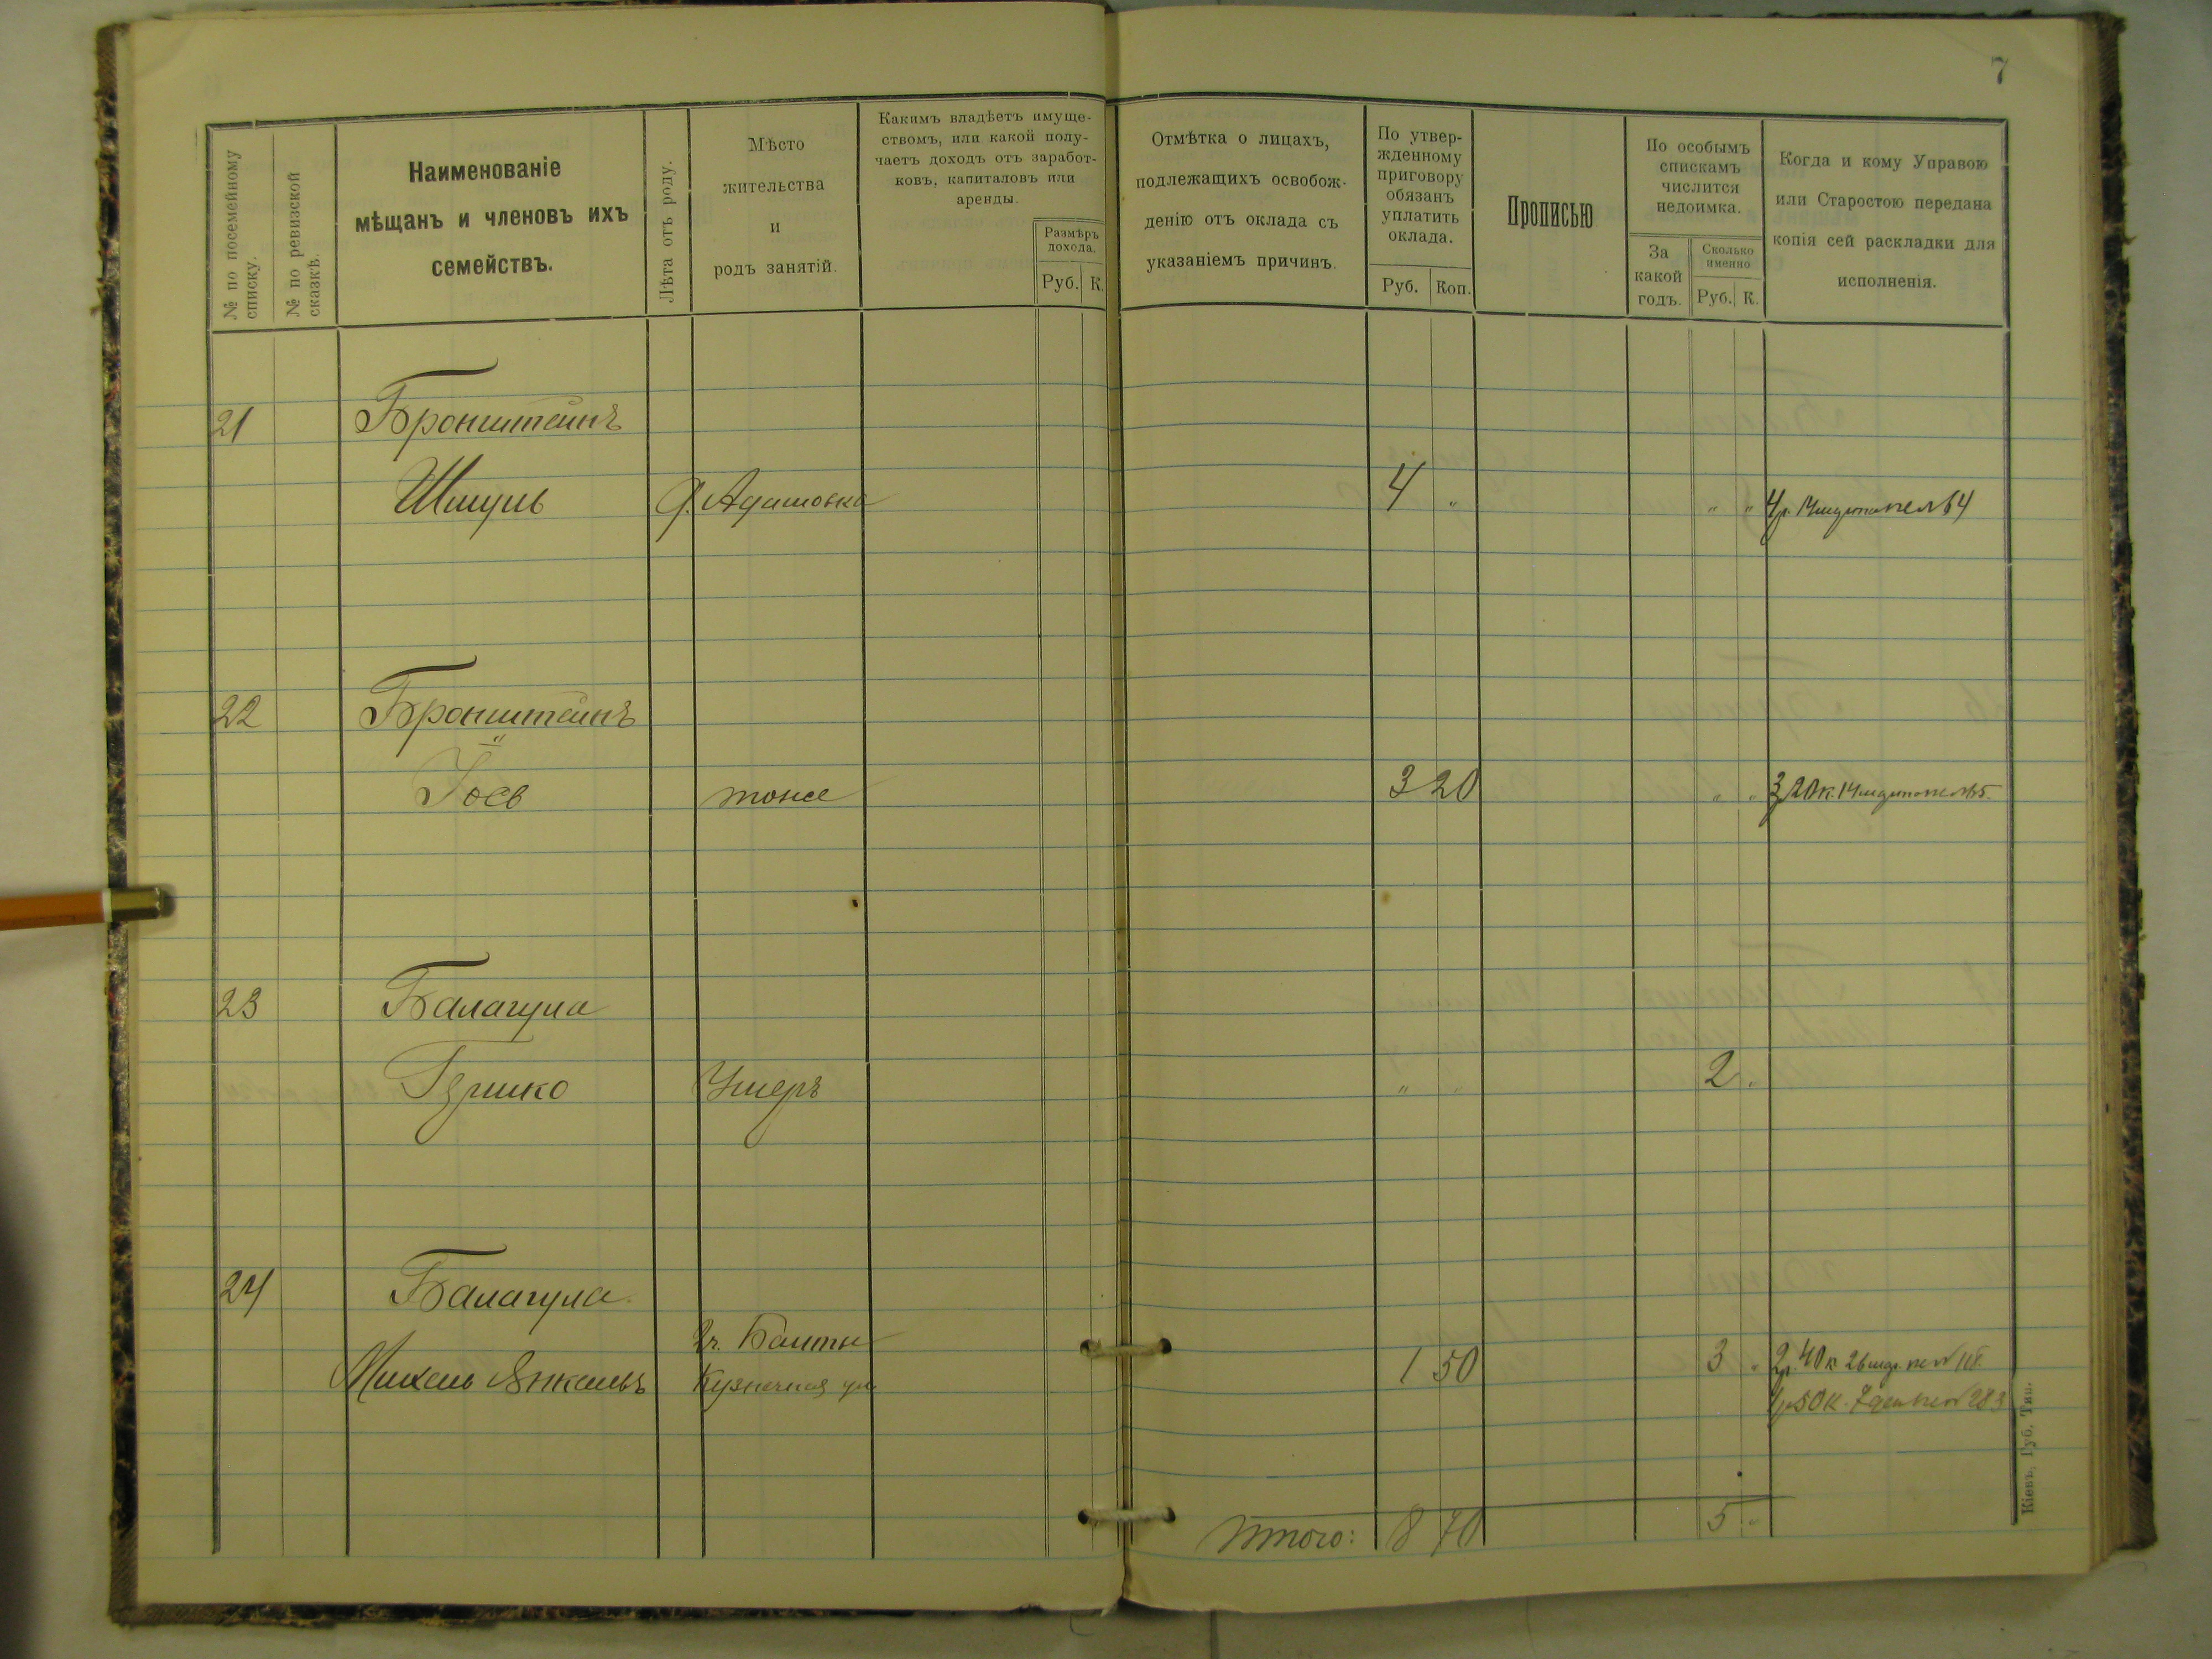 7
№ по посемейному списку.
№ по ревизской сказкѣ.
Наименованіе
мѣщанъ и членовъ ихъ
семействъ.
Лѣта отъ роду.
Мѣсто
жительства
и
родъ занятій.
Какимъ владѣетъ имуще-
ствомъ, или какой полу-
чаетъ доходъ отъ заработ-
ковъ, капиталовъ или
аренды.
Размѣръ
дохода.
Руб. К.
Отмѣтка о лицахъ,
подлежащихъ освобож-
денію отъ оклада съ
указаніемъ причинъ.
По утвер-
жденному
приговору
обязанъ
уплатить
оклада.
Руб. Коп.
Прописью
По особымъ
спискамъ
числится
недоимка.
За
какой
годъ.
Сколько
именно
Руб. К.
Когда и кому Управою
или Старостою передана
копія сей раскладки для
исполненія.
21 Бронштейнъ
Шмуль 4 " " " 4 р. 14
22 Бронштейнъ
Іось тоже 3 20 " " 3 20 к. 14
23 Балагула
Гершко Умеръ " " 2 .
24 Балагула
2 ч. Балты
Михель Янкель Кузнечная ул 1 50 3 " 2 р. 40 к. 26
1 р 50 к. 7 283
Итого: 8 70 5 "
Кіевъ, Губ. Тип.